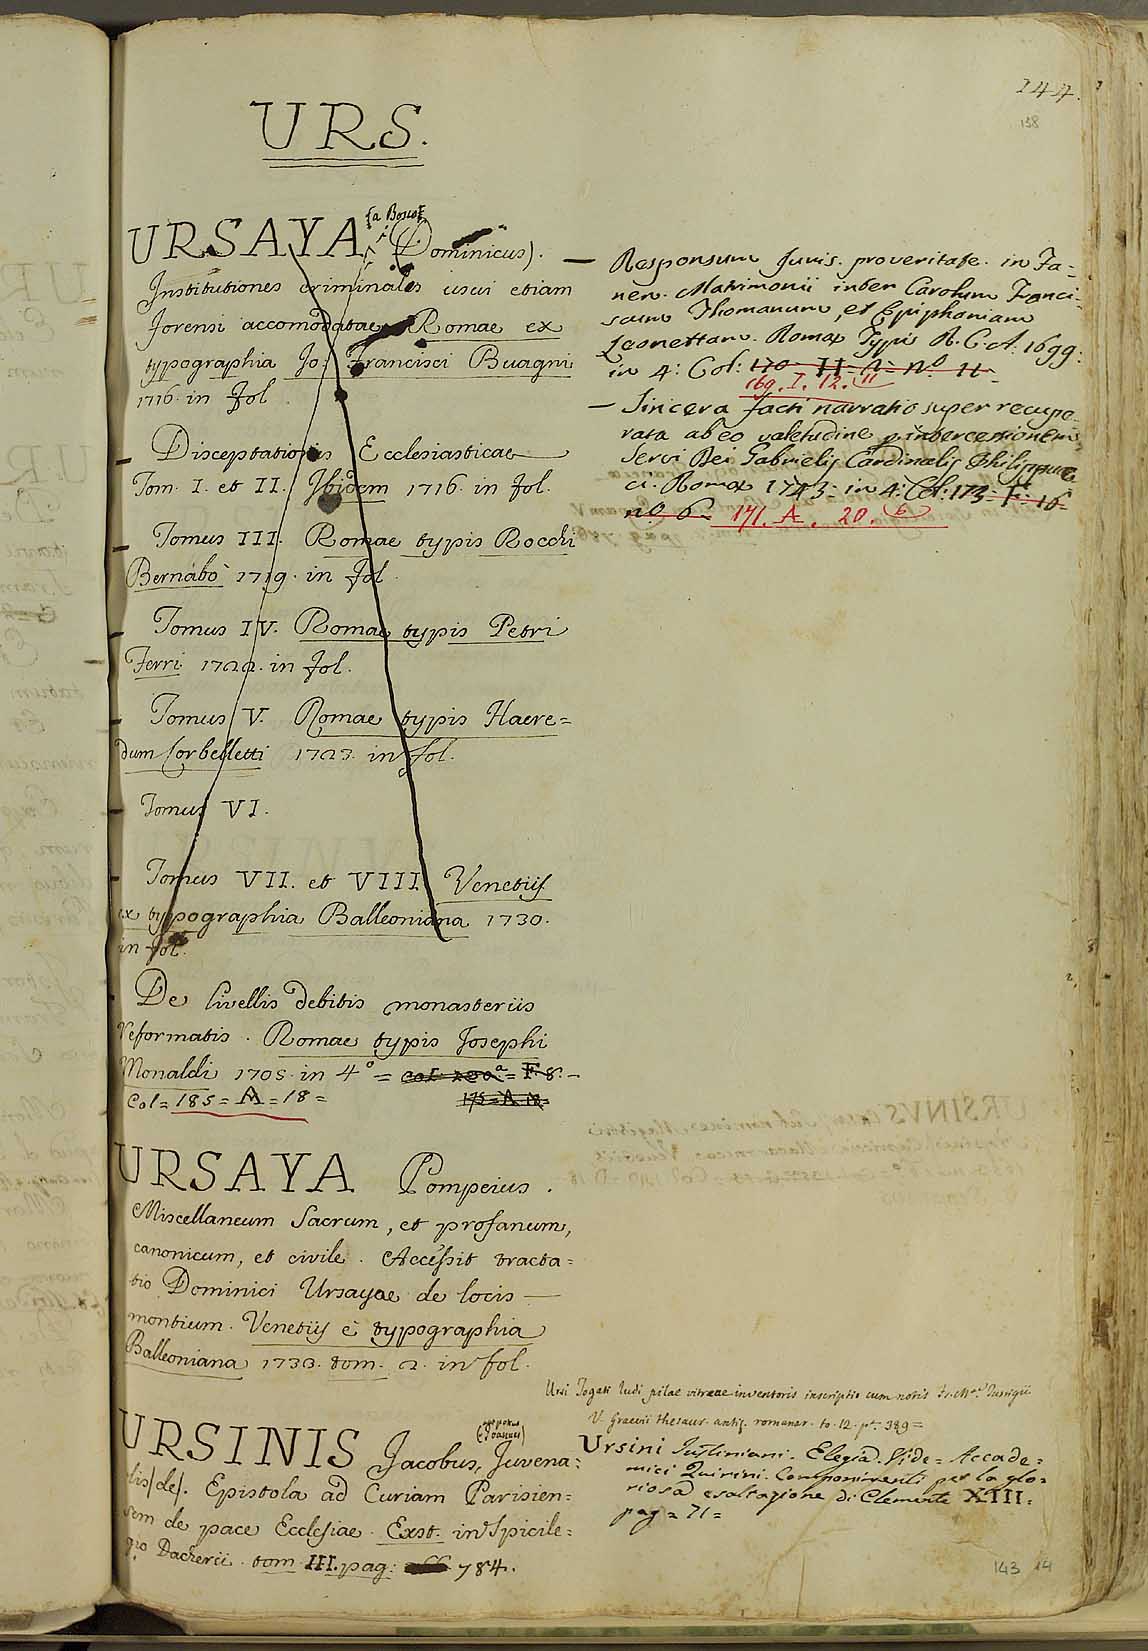 144.
158
URS.
URSAYA (a Bosco) (Dominicus).
Institutiones criminales usui etiam
forensi accomodatae Romae ex
typographia Jo: Francisci Buagni
1716. in fol.
Disceptationis Ecclesiasticae
Tom. I. et II. Ibidem 1716. in fol.
Tomus III. Romae typis Rocchi
Bernabò 1719. in fol.
Tomus IV. Romae typis Petri
Ferri 1722. in fol.
Tomus V. Romae typis Haere=
dum Corbelletti 1723. in fol.
Tomus VI.
Tomus VII. et VIII. Venetiis
ex typographia Balleoniana 1730.
in fol.
De livellis debitis monasteriis
reformatis. Romae typis Josephi
Monaldi 1705. in 4° = F. 8. –
Col = 185 = A = 18 = 175 = A.
URSAYA Pompeius.
Miscellaneum Sacrum, et profanum,
canonicum, et civile. Accessit tracta=
tio Dominici Ursayae de locis —
montium. Venetiis è typographia
Balleoniana 1733. tom. 2. in fol.
URSINIS Jacobus, Juvena=
lis /de/. Epistola ad Curiam Parisien=
sem de pace Ecclesiae. Exst. in Spicile=
gio Dacherii. tom III. pag: 784.
— Responsum Juris. pro veritate. in Ja=
nen. Matrimonii inter Carolum Franci=
scum Thomanum, et Epiphaniam
Leonettam. Romae Typis R. C. A. 1699:
in 4: Col: 170 II = A = n.° 11 =
169. I. 12. 11
— Sincera facti narratio super recupe=
rata ab eo valetudine p. intercessionem
Servi Dei Gabrielis Cardinalis Philippuc=
ci. Romae 1743: in 4: Col: 173 = F. 16=
n.° 6 = 171. A. 20. 6
Ursi Togati ludi pilae vitreae inventoris inscriptio cum notis
V. Graevii thesaur. antiq. romanar. to. 12. p. 389 =
Ursini Justiniani. Elegia. Vide = Accade=
mici Quirini. Componimenti per la glo=
riosa esaltazione di Clemente XIII.
pag = 71 =
143 14